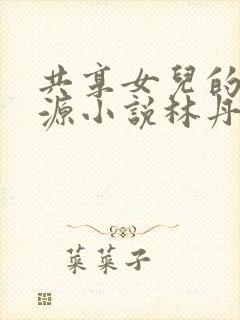 共享女兒的
源小說林丹
菜菜子